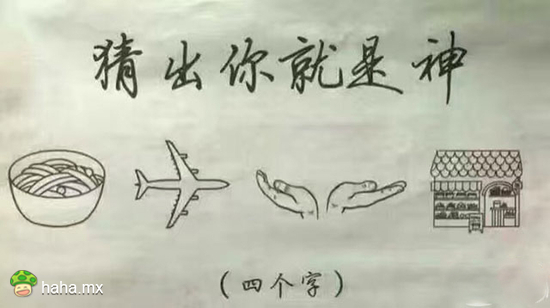 猜出你就是神
(四个字)
haha.mx